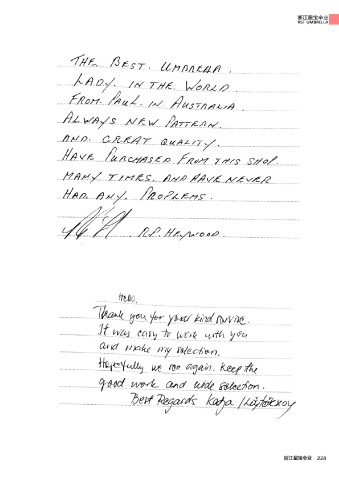 浙江星宝伞业
RST UMBRELLA
THE BEST. UMBRELLA.
LADY. IN THE WORLD
FROM. PAUL. IN AUSTRALIA
ALWAYS NEW PATTERN.
AND. GREAT QUALITY.
HAVE PURCHASED FROM THIS SHOP.
MANY TIMES. AND HAVE NEVER
HAD ANY. PROPLEMS.
R.P. HEYWOOD.
Hello,
Thank you for your kind service.
It was easy to work with you
and make my selection.
Hopefully we see again. Keep the
good work and wide selection.
Best Regards Katja
浙江星宝伞业 228